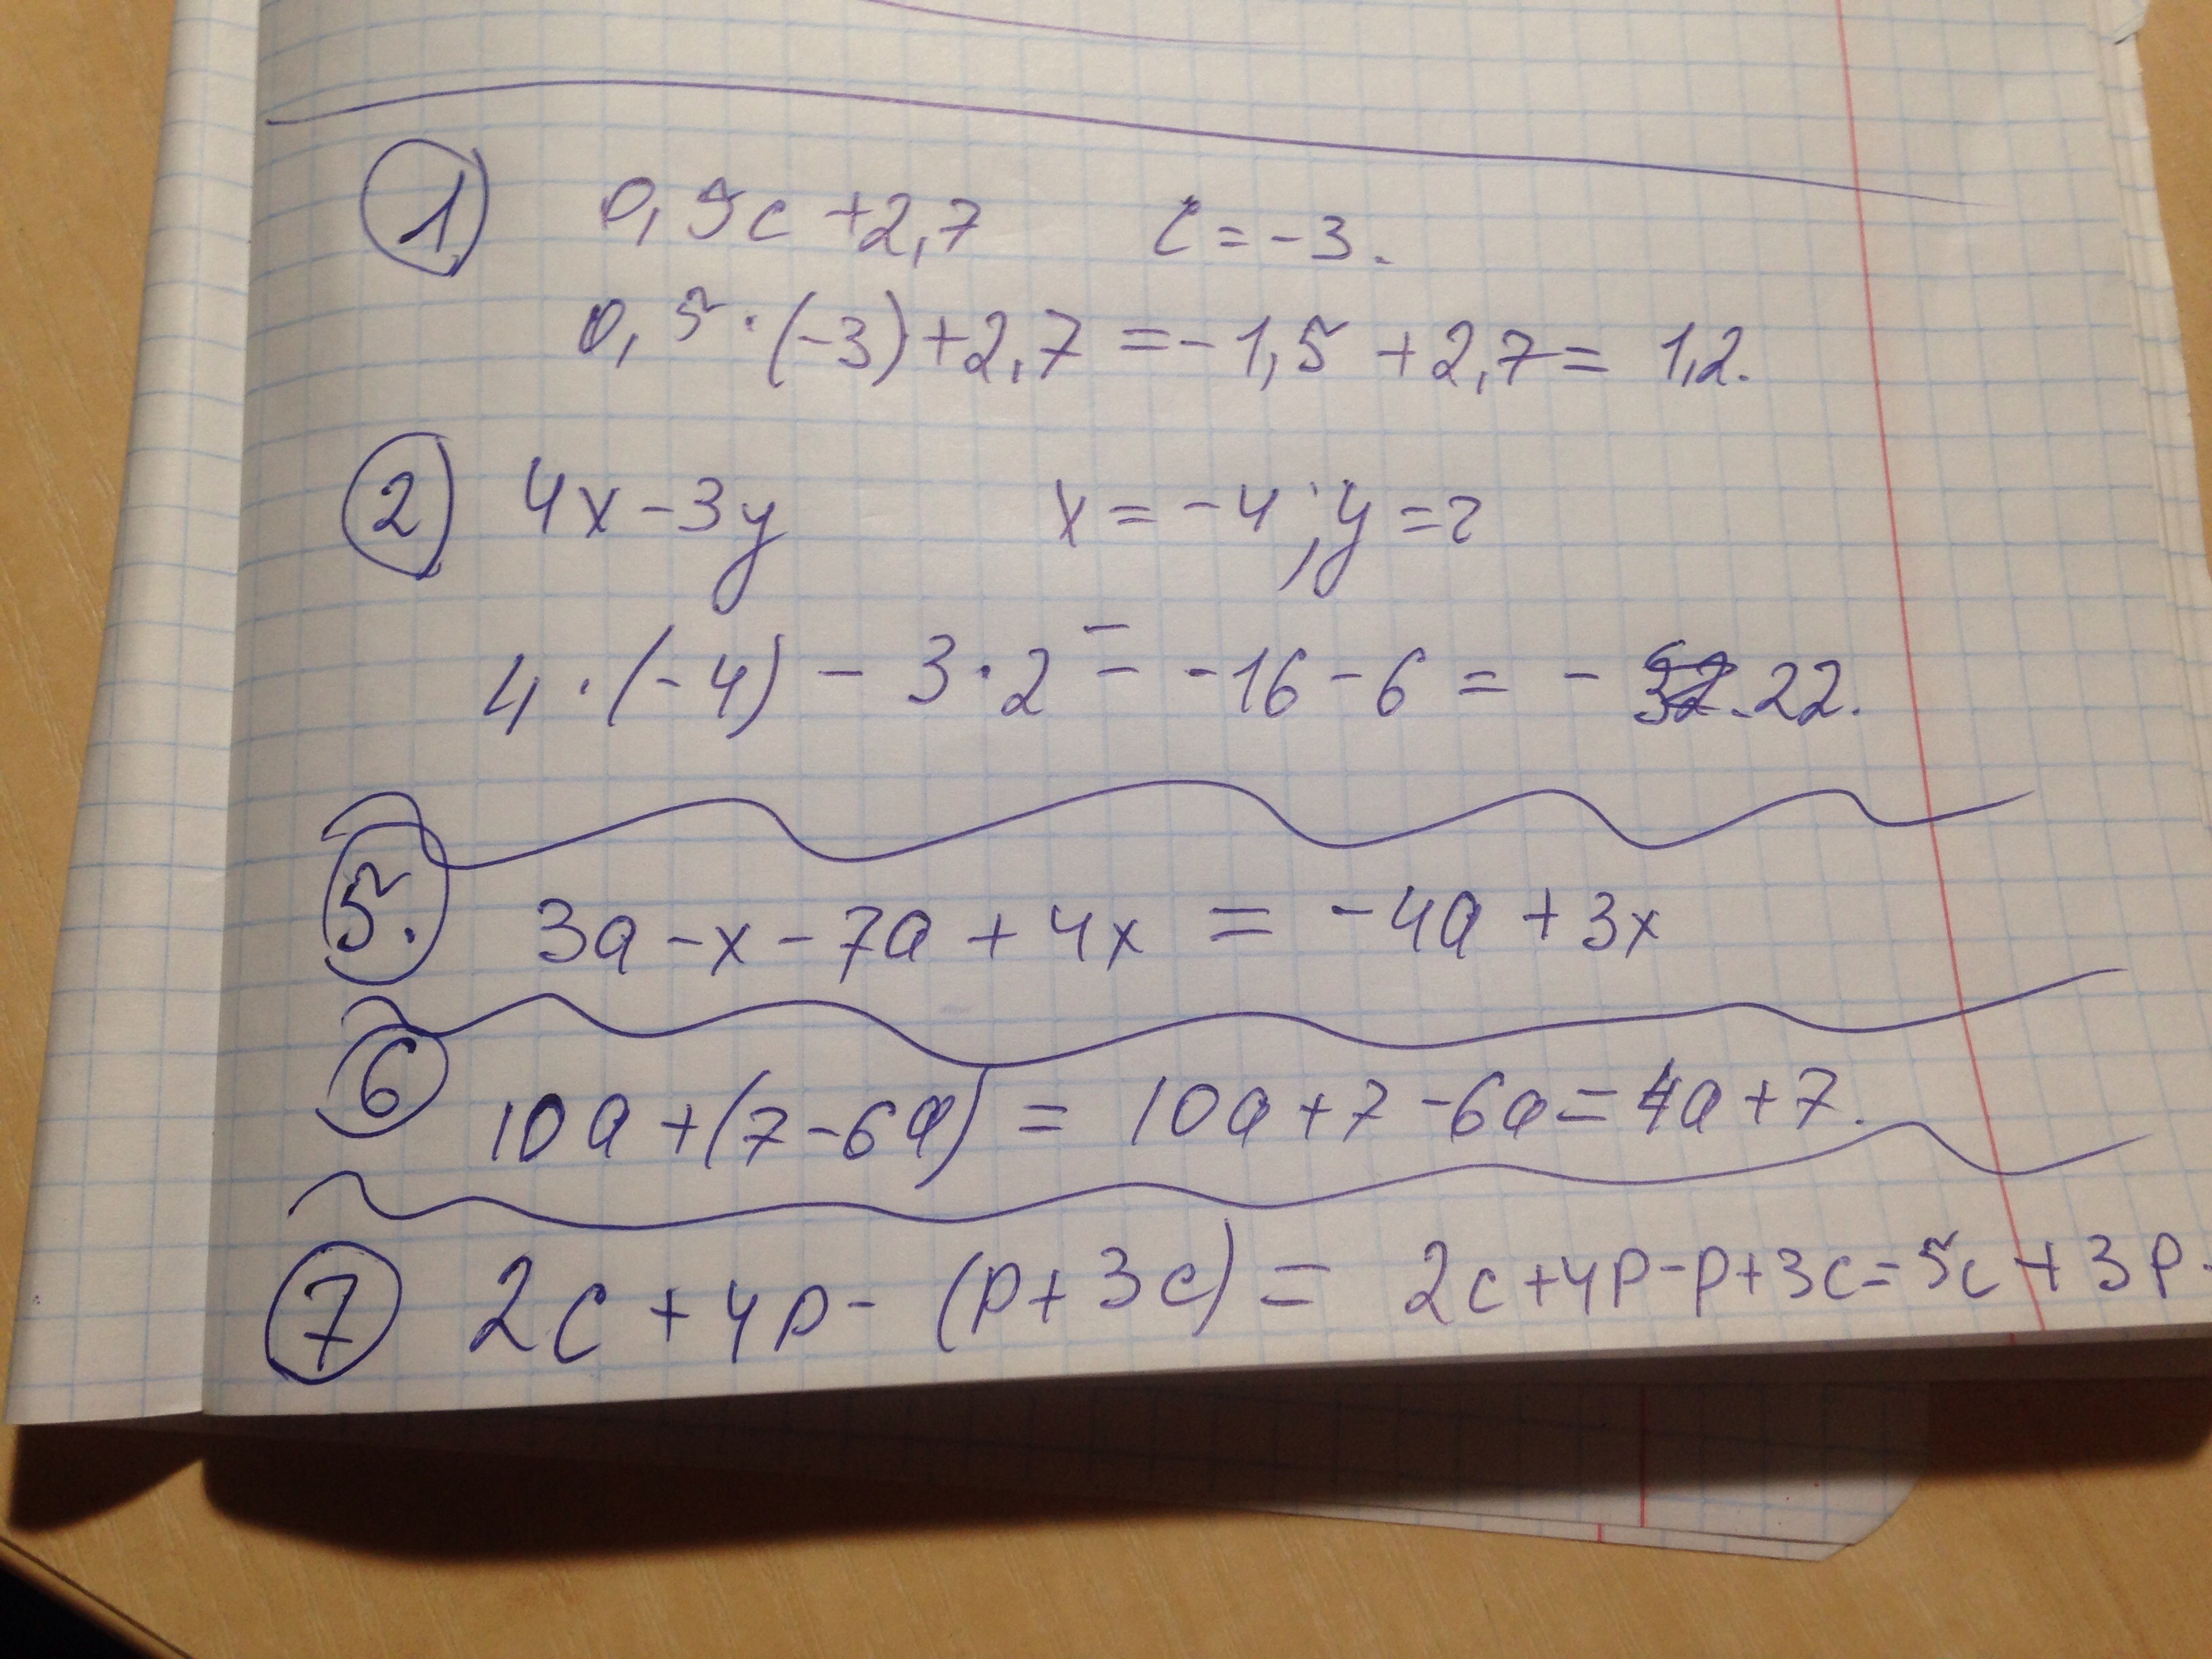 1 0,5c+2,7 c=-3.
0,5·(-3)+2,7=-1,5+2,7=1,2.
2 4x-3y x=-4; y=2
4·(-4)-3·2=-16-6=-22.
5. 3a-x-7a+4x=-4a+3x
6 10a+(7-6a)=10a+7-6a=4a+7.
7 2c+4p-(p+3c)=2c+4p-p+3c=5c+3p.